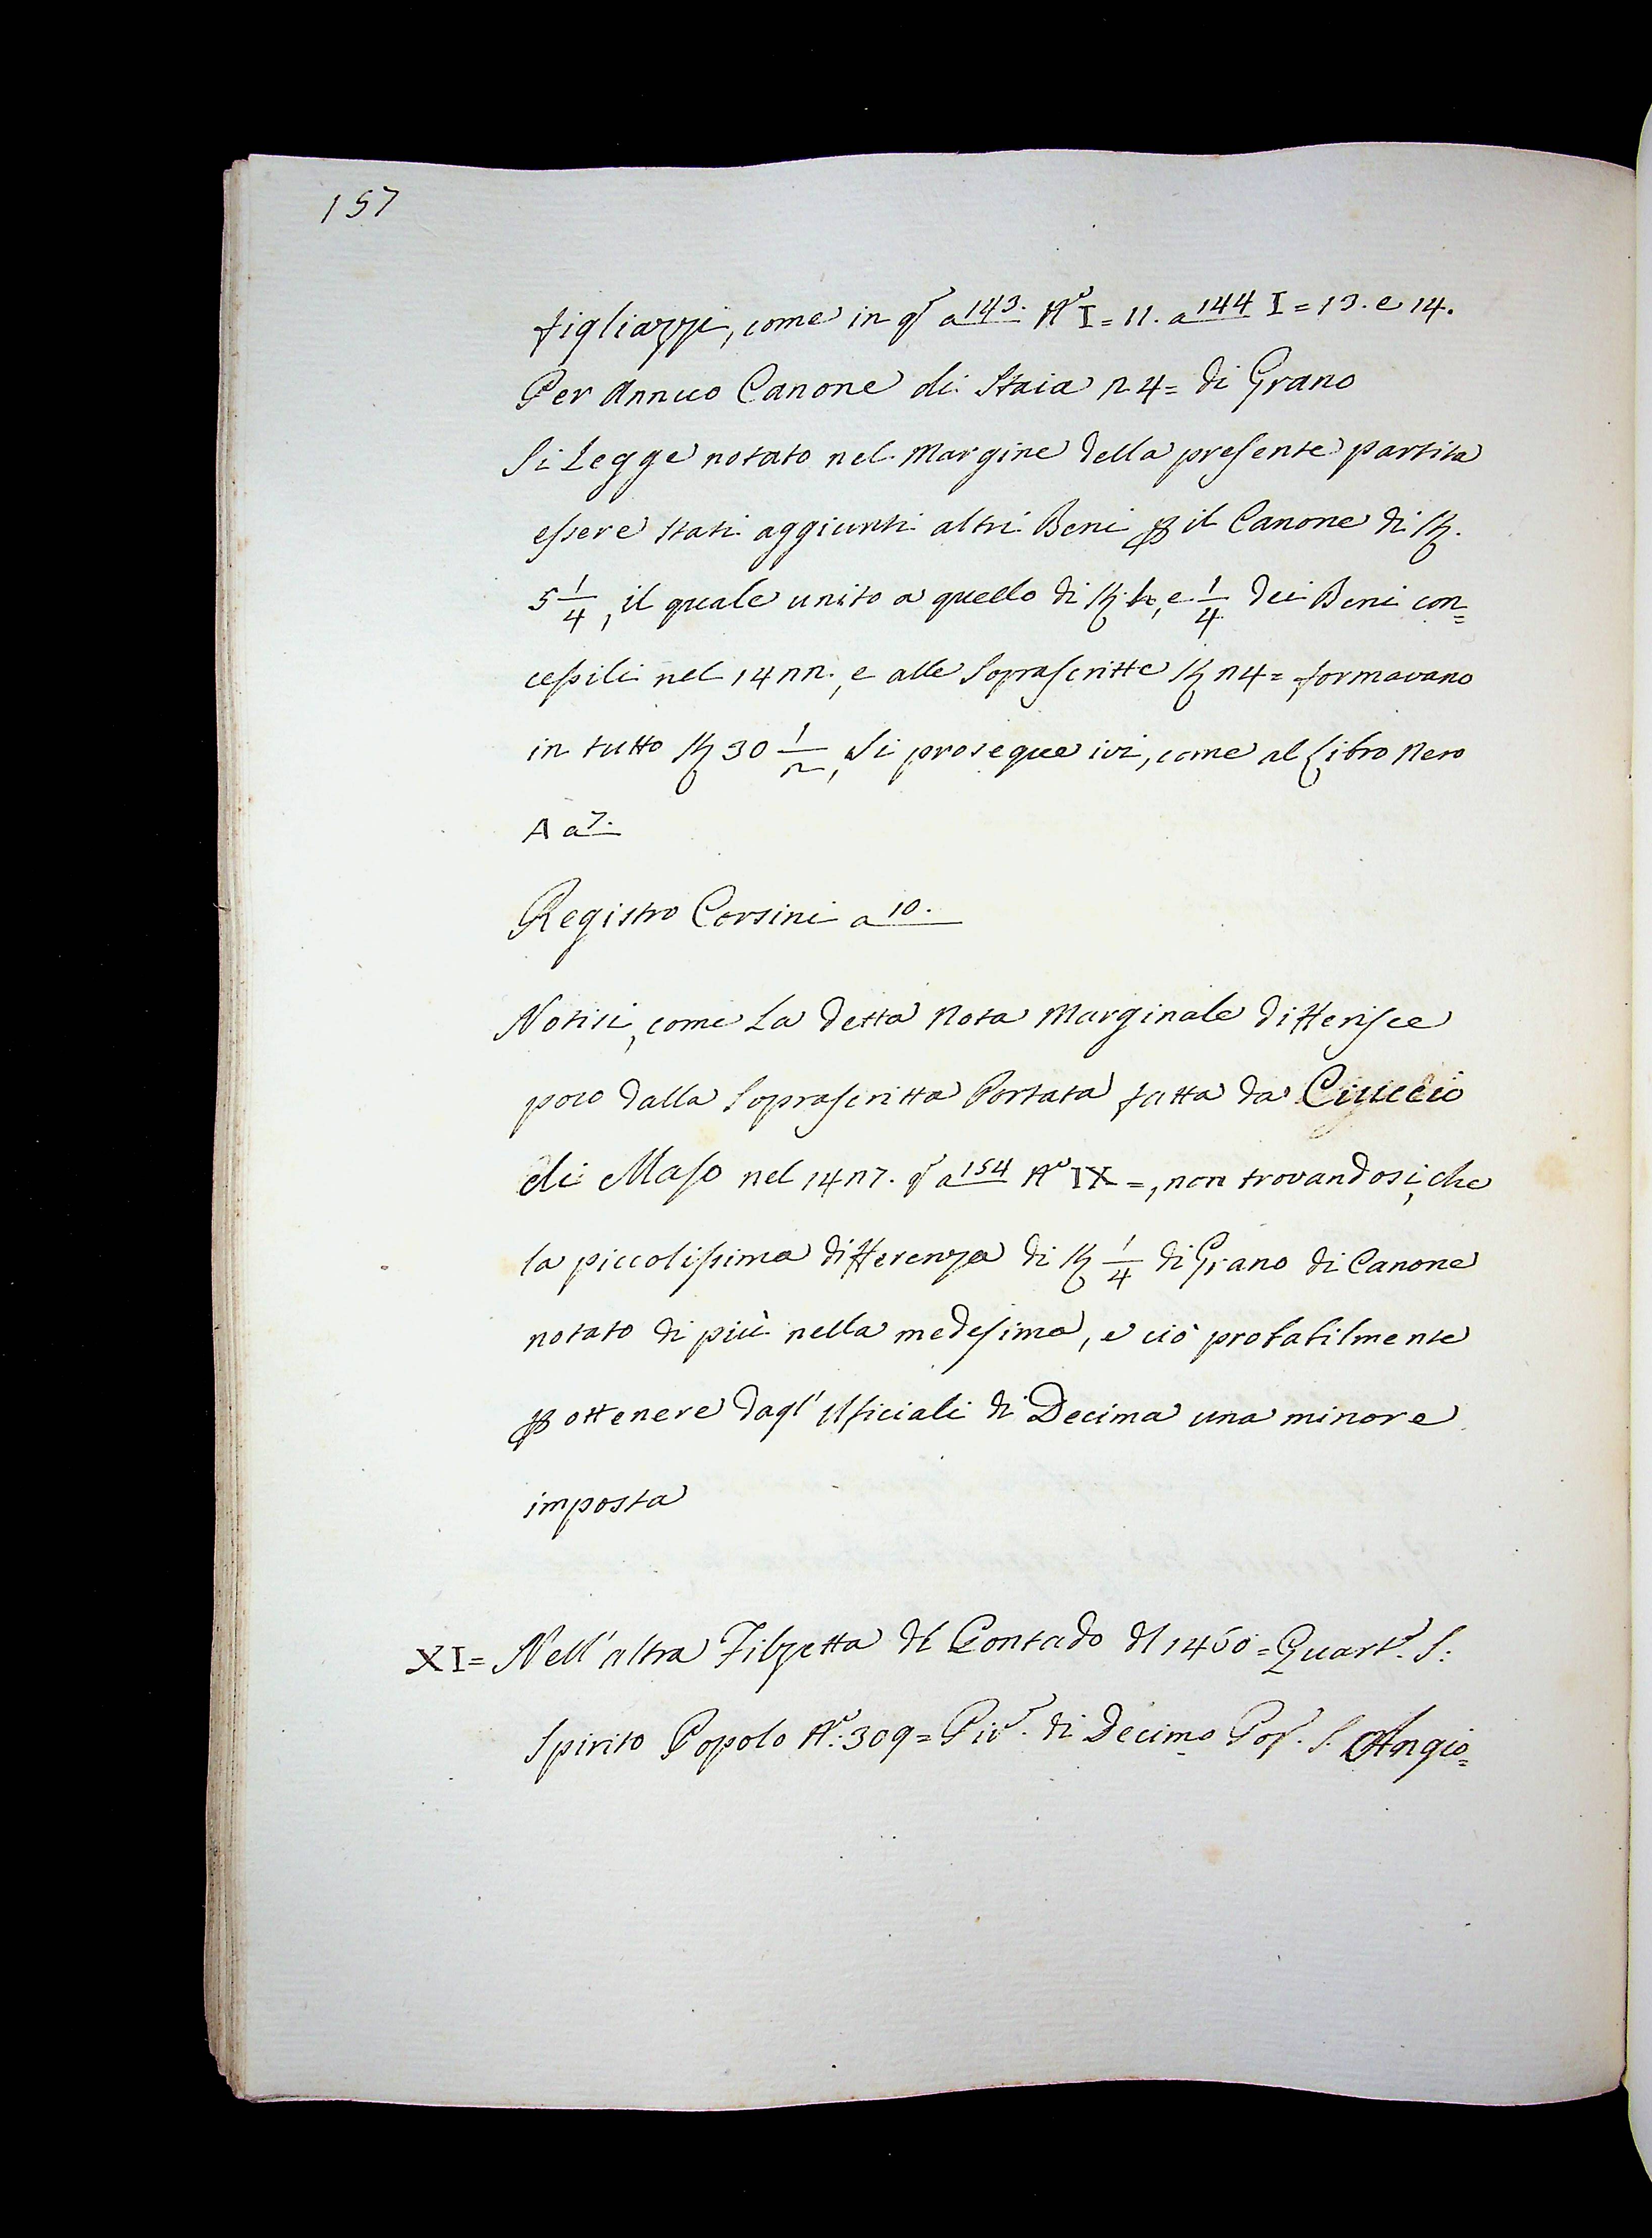 157
figliazzi, come in qto a 143. No I = 11. a 144 I = 13. e 14.
Per Annuo Canone di Staia 24 = di Grano
Si Legge notato nel Margine della presente partita
essere stati aggiunti altri Beni p il Canone di St.
5 1/4, il quale unito a quello di St. 1, e 1/4 dei Beni con=
cessili nel 1422., e alle Soprascritte St 24 = formavano
in tutto St 30 1/2, Si prosegue ivi, come al Libro Nero
A a 7.
Registro Corsini a 10.
Notisi, come La detta Nota Marginale differisce
poco dalla Soprascritta Portata fatta da Ciuccio
di Maso nel 1427. qto a 154 No IX =, non trovandosi, che
la piccolissima differenza di St 1/4 di Grano di Canone
notato di più nella medesima, e ciò probabilmente
p ottenere dagl' Uficiali di Decima una minore
imposta
XI = Nell' altra Filzetta del Contado del 1460 = Quart.e S:
Spirito Popolo No: 309 = Piv.e di Decimo Pop. S. Angio=